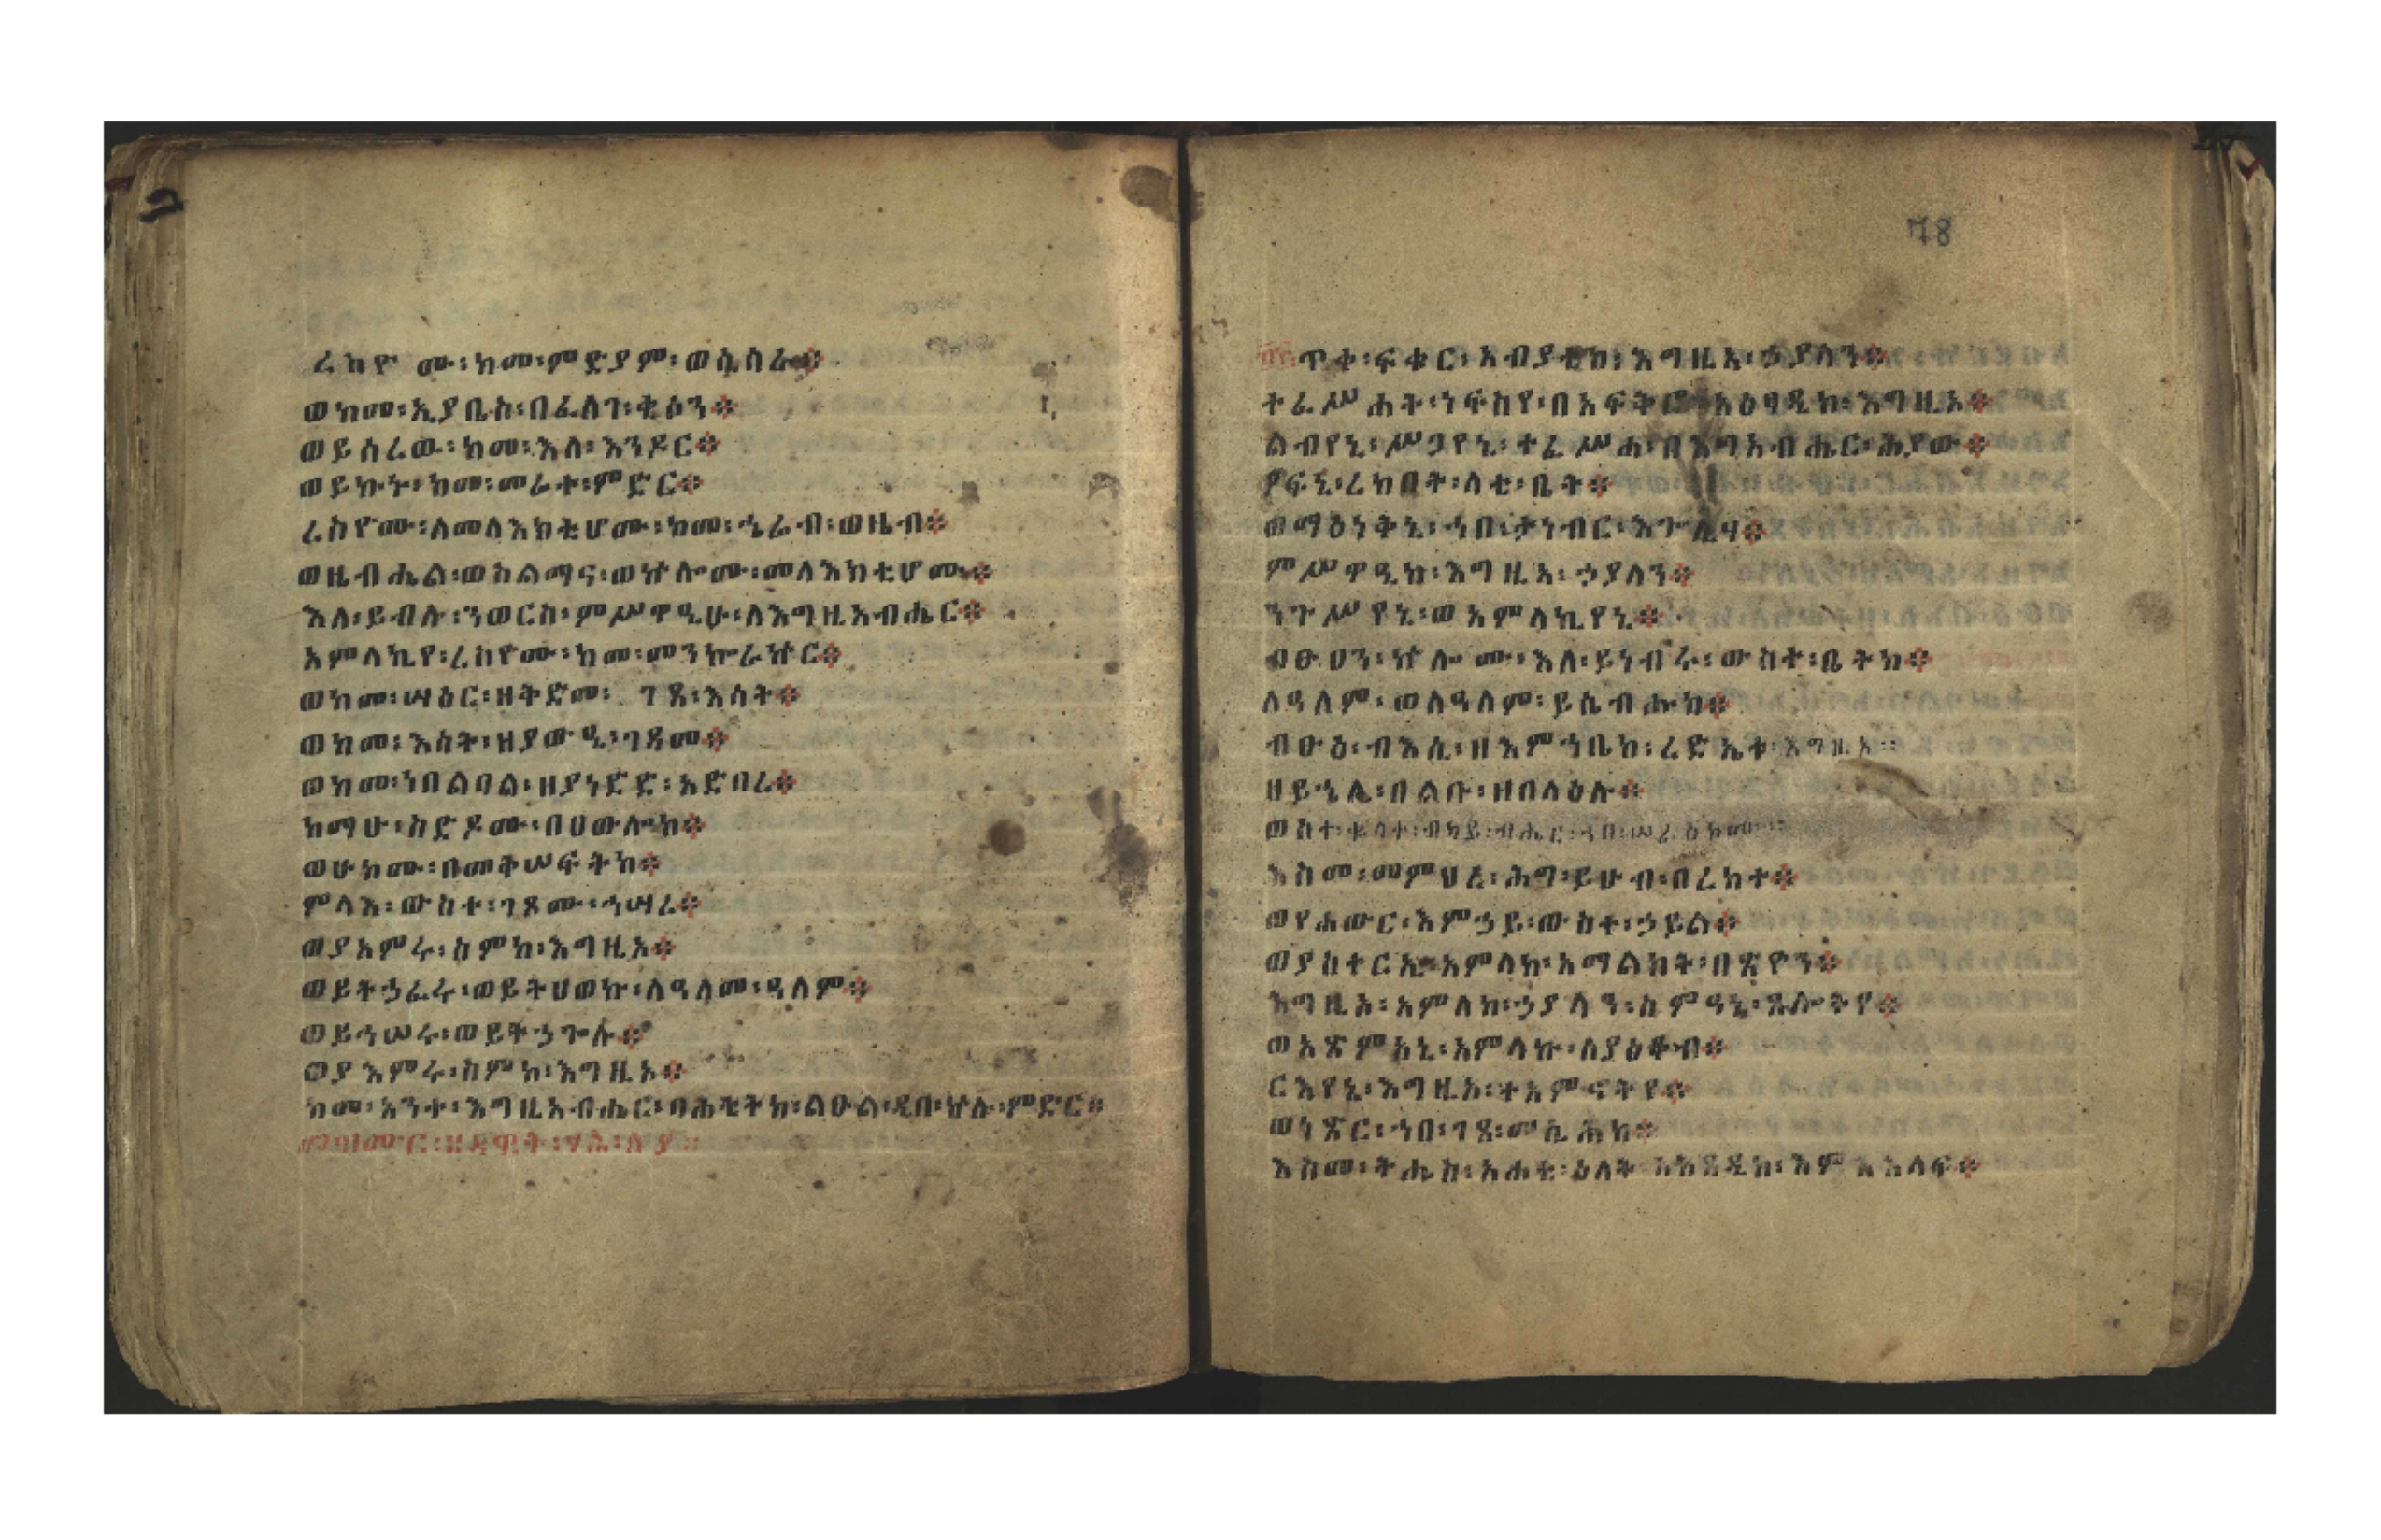 ረስዮ ሙ፡ከመ፡ምድያም፡ወሲሰራ።
ወከመ፡ኢያቤስ፡በፈለገ፡ቂሶን።
ወይሰረው፡ከመ፡እለ፡እንዶር።
ወይኩኑ፡ከመ፡መሬተ፡ምድር።
ረስዮሙ፡ለመላእክቲሆሙ፡ከመ፡ኄሬብ፡ወዜብ።
ወዜብሔል፡ወስልማና፡ወኵሎሙ፡መላእክቲሆሙ።
እለ፡ይብሉ፡ንወርስ፡ምሥዋዒሁ፡ለእግዚአብሔር።
አምላኪየ፡ረስዮሙ፡ከመ፡መንኰራኵር።
ወከመ፡ሣዕር፡ዘቅድመ፡ ገጸ፡እሳት።
ወከመ፡እሳት፡ዘያውዒ፡ገዳመ።
ወከመ፡ነበልባል፡ዘያነድድ፡አድበረ።
ከማሁ፡ስድዶሙ፡በሀውሎከ።
ወሁከሙ፡በመቅሠፍትከ።
ምላእ፡ውስተ፡ገጾሙ፡ኀሣረ።
ወያእምሩ፡ስምከ፡እግዚኦ።
ወይትኃፈሩ፡ወይትሀወኩ፡ለዓለመ፡ዓለም።
ወይኅሠሩ፡ወይትኃጐሉ።
ወያእምሩ፡ስምከ፡እግዚኦ።
ከመ፡አንተ፡እግዚአብሔር፡ባሕቲትከ፡ልዑል፡ዲበ፡ኵሉ፡ምድር።
ጥቀ፡ፍቁር፡አብያቲከ፡እግዚአ፡ኃያላን።
ተፈሥሐት፡ነፍስየ፡በአፍቅሮ፡አዕፃዲከ፡እግዚኦ።
ልብየኒ፡ሥጋየኒ፡ተፈሥሐ፡በእግአብሔር፡ሕያው።
ዖፍኒ፡ረከበት፡ላቲ፡ቤተ።
ወማዕነቅኒ፡ኀበ፡ታነብር፡እጐሊሃ።
ምሥዋዒከ፡እግዚአ፡ኃያላን።
ንጉሥየኒ፡ወአምላኪየኒ።
ብፁዓን፡ኵሎሙ፡እለ፡ይነብሩ፡ውስተ፡ቤትከ።
ለዓለም፡ወለዓለም፡ይሴብሑከ።
ብፁዕ፡ብእሲ፡ዘእምኀቤከ፡ረድኤቱ፡እግዚኦ።
ዘይኄሊ፡በልቡ፡ዘበላዕሉ።
እስመ፡መምህረ፡ሕግ፡ይሁብ፡በረከተ።
ወየሐውር፡እምኃይ፡ውስተ፡ኃይል።
ወያስተርኢ፡አምላከ፡አማልክት፡በጽዮን።
እግዚአ፡አምላከ፡ኃያላን፡ስምዓኒ፡ጸሎትየ።
ወአጽምአኒ፡አምላኩ፡ለያዕቆብ።
ርእየኒ፡እግዚኦ፡ተአምኖትየ።
ወነጽር፡ኀበ፡ገጸ፡መሲሕከ።
እስመ፡ትሔይስ፡አሐቲ፡ዕለት